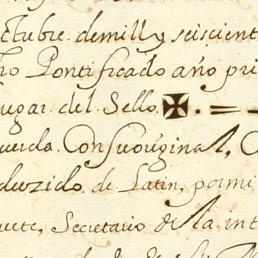 ctubre. demill y seiscient
ho Pontificado año pri
ugar del Sello ✠. =
uerda. Con su original, C
duzido de Latin, por mi
uete, Secretario de la int